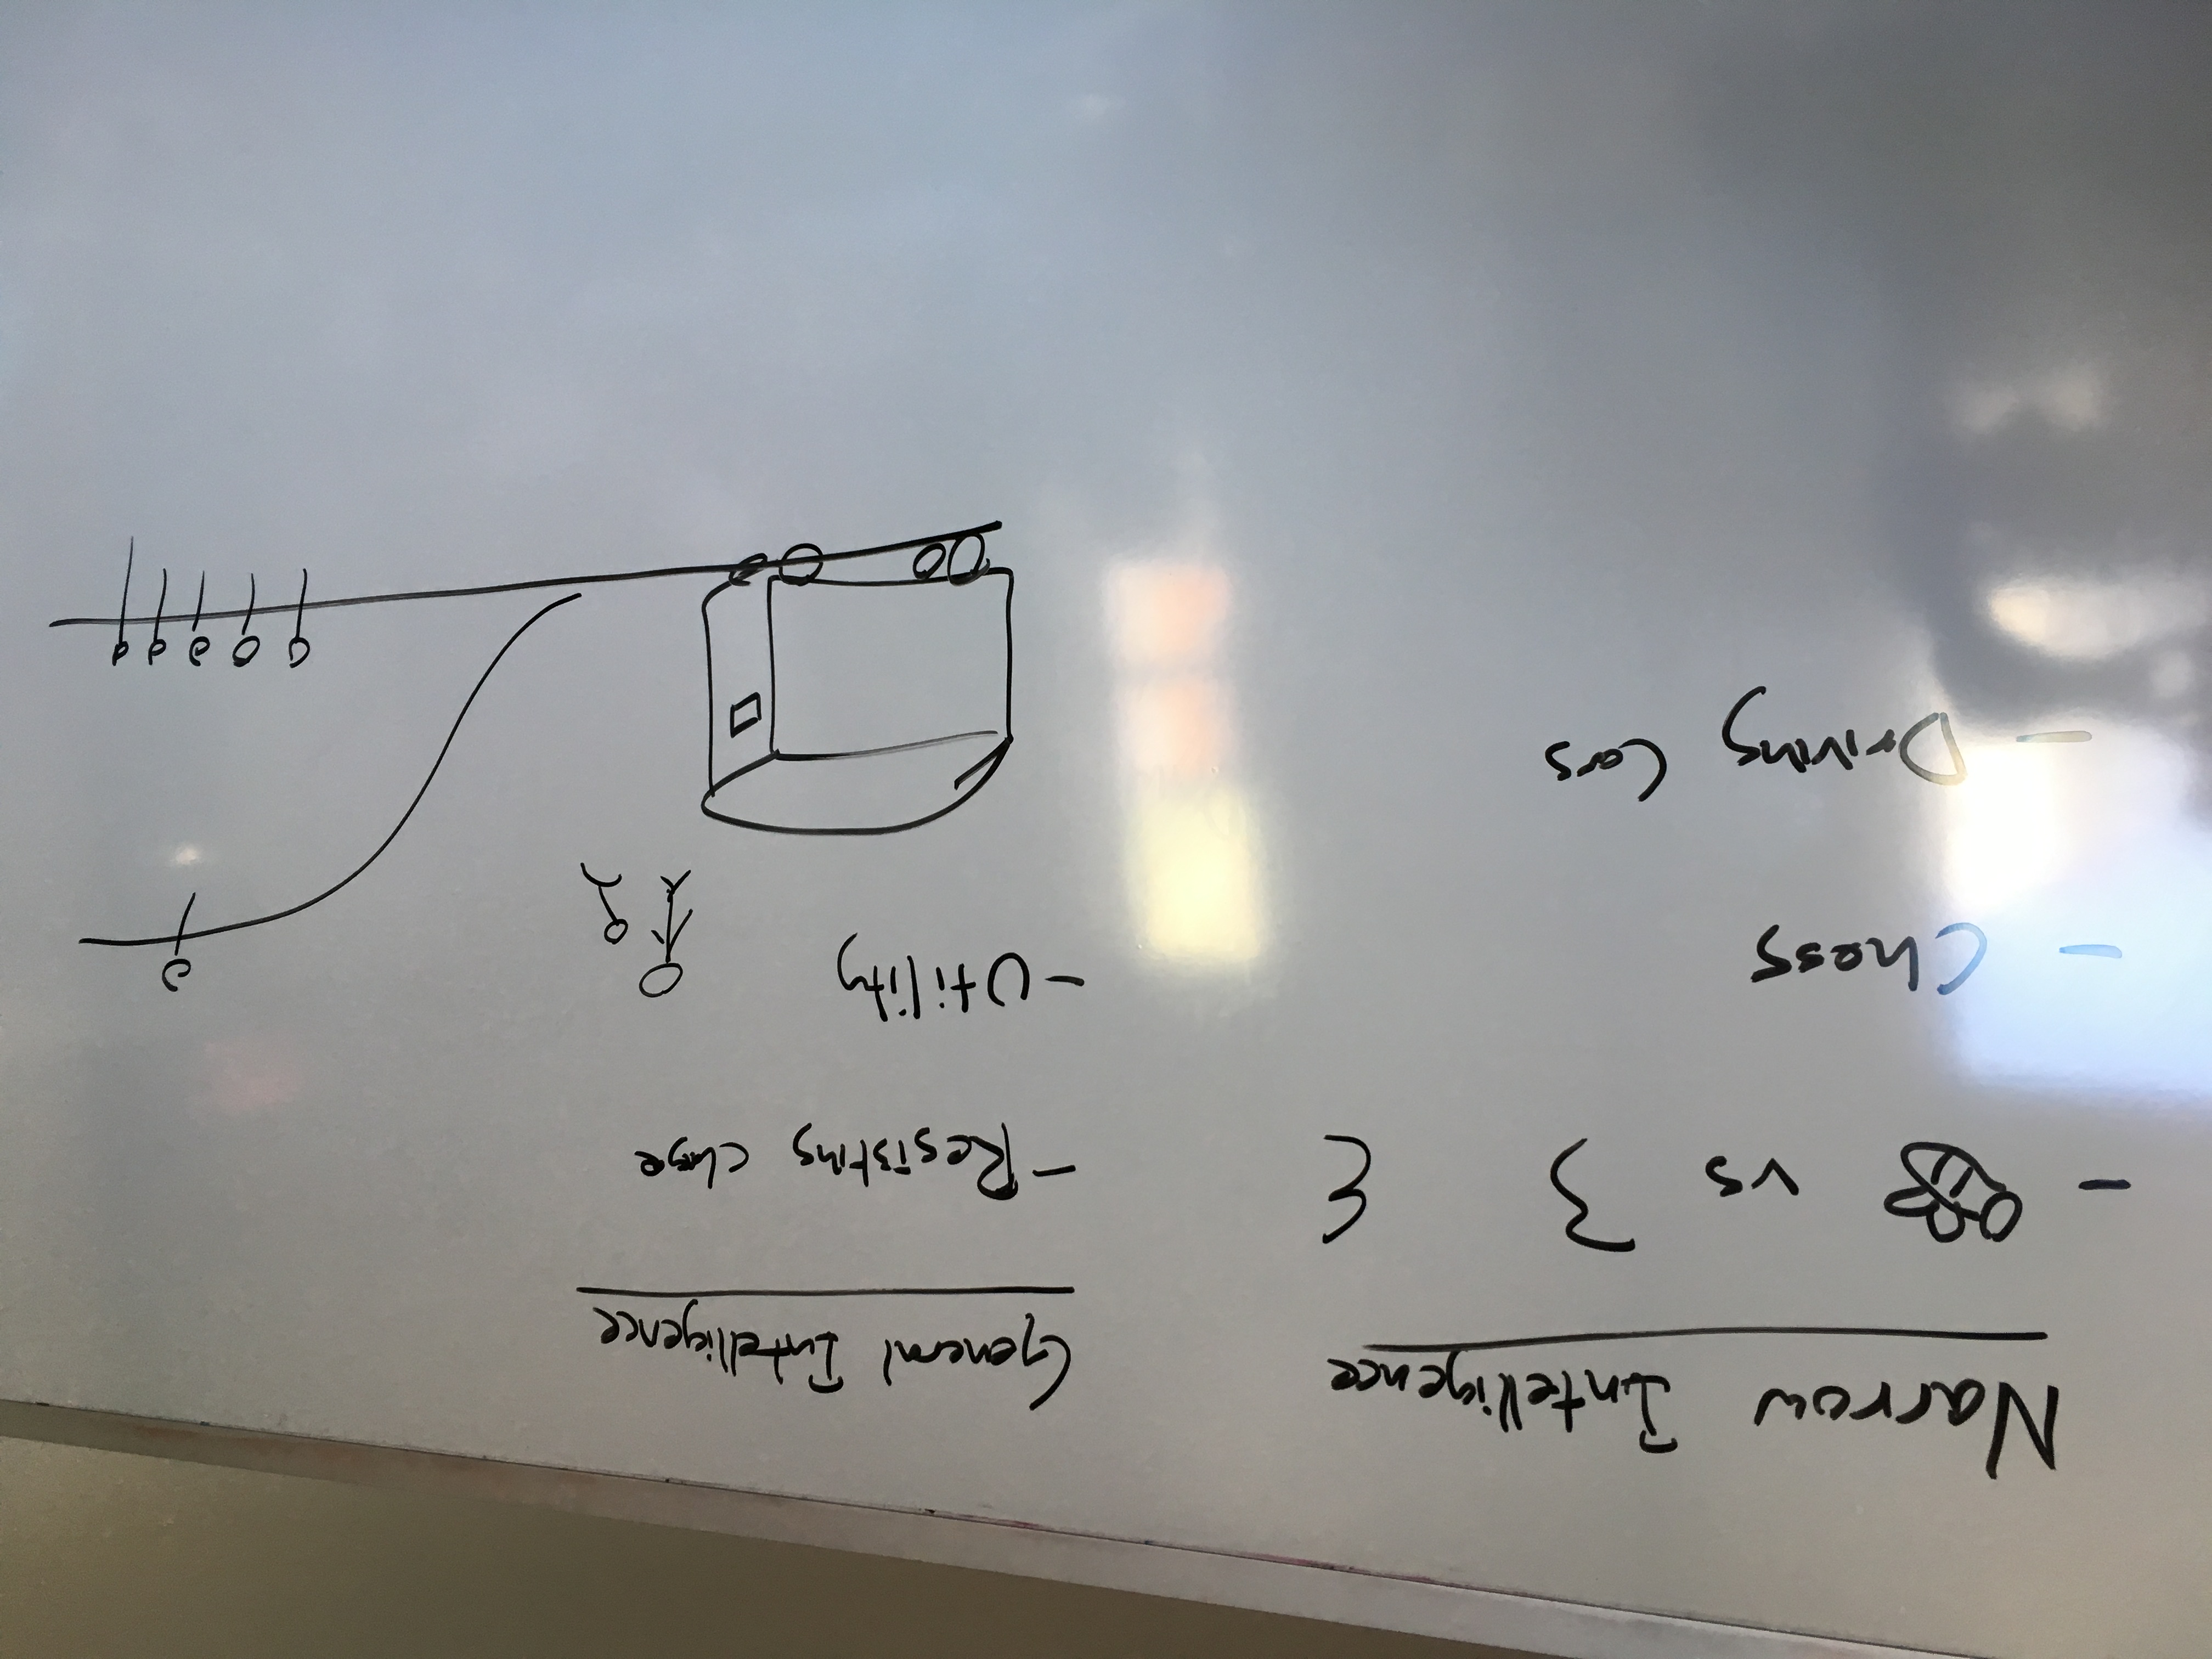 Narrow Intelligence
- vs 3 ε
- Chess
- Driving Cars
General Intelligence
- Resisting change
- Utility